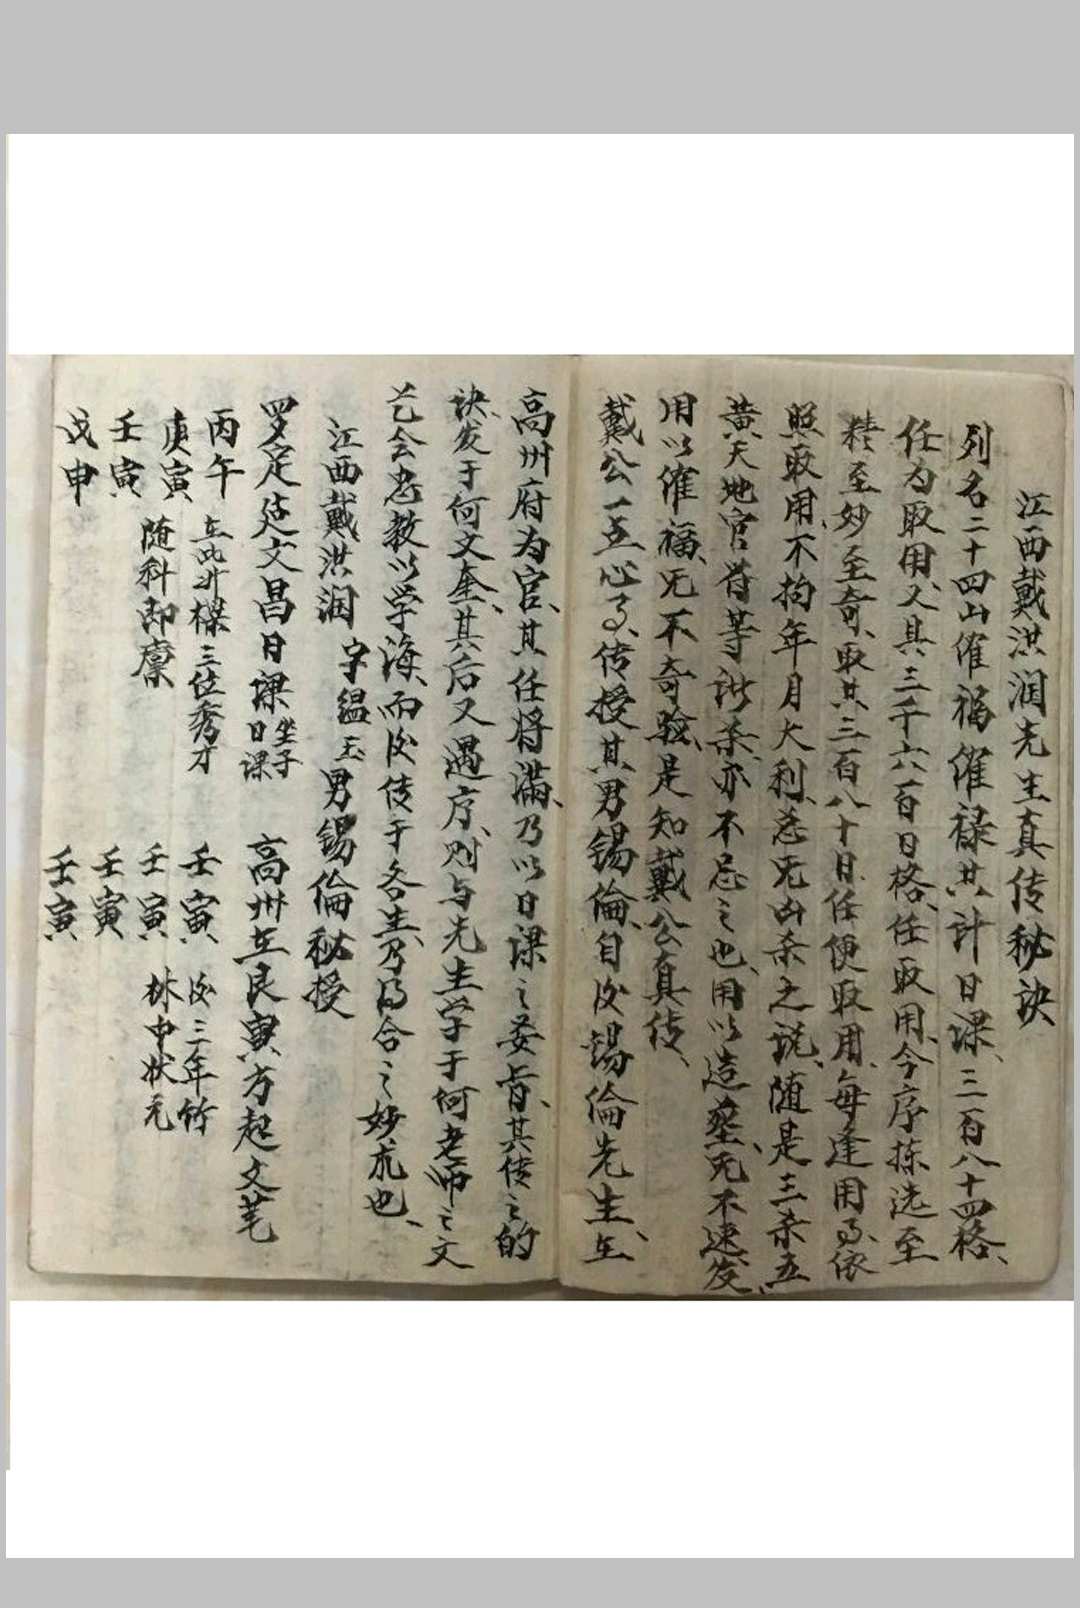 江西戴洪润先生真传秘诀
列名二十四山催福催禄共计日课、三百八十四格、
任为取用、又其三千六百日格、任取用、今序拣选至
精至妙至奇、取共三百八十日、任便取用、每逢用、依
照取用、不拘年月大利、忌无凶杀之说、随是三杀五
黄天地官符等诸杀、亦不忌之也、用以造葬、无不速发、
用以催福、无不奇验、是知戴公真传、
戴公一生心、传授其男锡倫、自后锡倫先生、在
高州府为官、其任将滿、乃以日课之妾肯、其传之的
诀、发于何文奎、其后又遇序、则与先生学于何老师之文
艺会忠教以学海、而后传于各生、乃得合之妙也、
江西戴洪润 字緼玉 男锡倫秘授
罗定廷文昌日课 坐子日课
丙午
庚寅
壬寅
戊申
在此升樑三位秀才
随科即廪
高州在艮寅方起文笔
壬寅
壬寅
壬寅
壬寅
后三年竹
林中状元